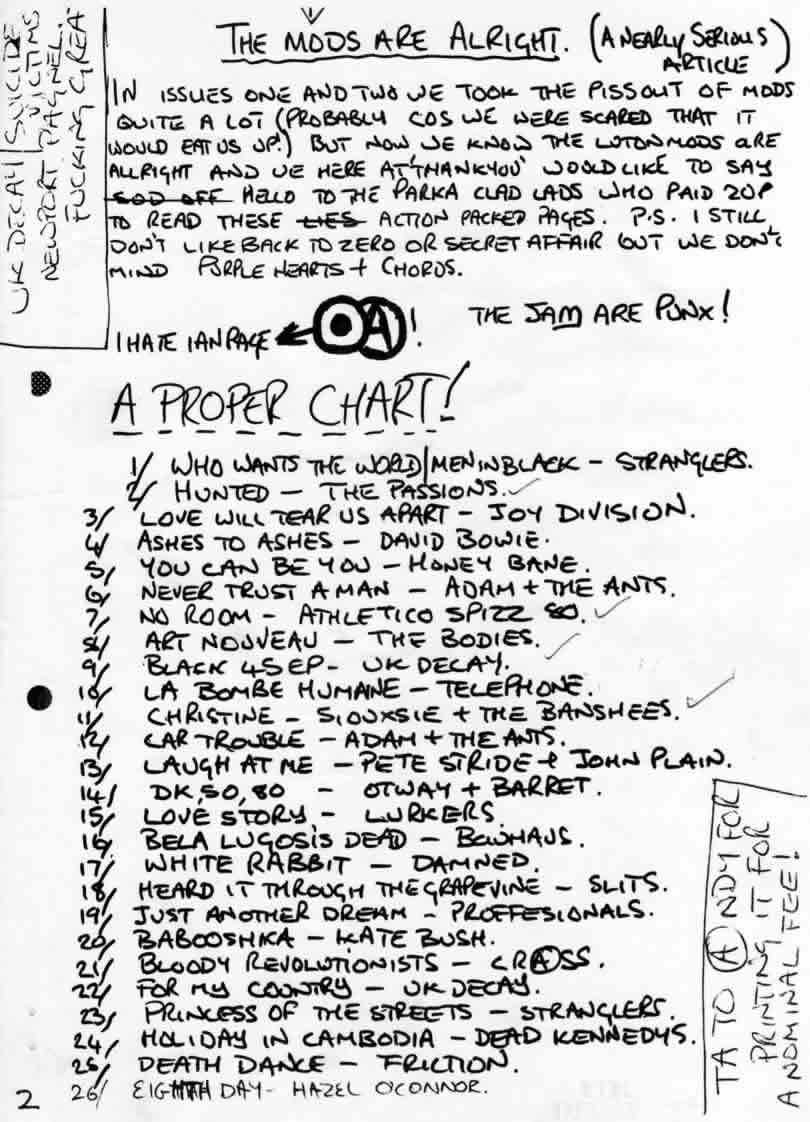 UK DECAY/SUICIDE
VICTIMS
NEWPORT PAGNEL.
FUCKING GREA
THE MODS ARE ALRIGHT. (A NEARLY SERIOUS
ARTICLE)
IN ISSUES ONE AND TWO WE TOOK THE PISS OUT OF MODS
QUITE A LOT (PROBABLY COS WE WERE SCARED THAT IT
WOULD EAT US UP!) BUT NOW WE KNOW THE LUTON MODS ARE
ALRIGHT AND WE HERE AT 'THANKYOU' WOULD LIKE TO SAY
SOD OFF HELLO TO THE PARKA CLAD LADS WHO PAID 20P
TO READ THESE LIES ACTION PACKED PAGES. P.S. I STILL
DON'T LIKE BACK TO ZERO OR SECRET AFFAIR BUT WE DON'T
MIND PURPLE HEARTS + CHORDS.
I HATE IAN PAGE A! THE JAM ARE PUNX!
A PROPER CHART!
1/ WHO WANTS THE WORLD/MENINBLACK - STRANGLERS.
2/ HUNTED - THE PASSIONS.
3/ LOVE WILL TEAR US APART - JOY DIVISION.
4/ ASHES TO ASHES - DAVID BOWIE.
5/ YOU CAN BE YOU - HONEY BANE.
6/ NEVER TRUST A MAN - ADAM + THE ANTS.
7/ NO ROOM - ATHLETICO SPIZZ 80.
8/ ART NOUVEAU - THE BODIES.
9/ BLACK 45 EP - UK DECAY.
10/ LA BOMBE HUMANE - TELEPHONE.
11/ CHRISTINE - SIOUXSIE + THE BANSHEES.
12/ CAR TROUBLE - ADAM + THE ANTS.
13/ LAUGH AT ME - PETE STRIDE + JOHN PLAIN.
14/ DK, 50, 80 - OTWAY + BARRET.
15/ LOVE STORY - LURKERS.
16/ BELA LUGOSIS DEAD - BOWHAUS.
17/ WHITE RABBIT - DAMNED.
18/ HEARD IT THROUGH THE GRAPEVINE - SLITS.
19/ JUST ANOTHER DREAM - PROFFESIONALS.
20/ BABOOSHKA - KATE BUSH.
21/ BLOODY REVOLUTIONISTS - CRASS.
22/ FOR MY COUNTRY - UK DECAY.
23/ PRINCESS OF THE STREETS - STRANGLERS.
24/ HOLIDAY IN CAMBODIA - DEAD KENNEDYS.
25/ DEATH DANCE - FRICTION.
26/ EIGHTH DAY - HAZEL O'CONNOR.
TA TO ANDY FOR
PRINTING IT FOR
A NOMINAL FEE!
2